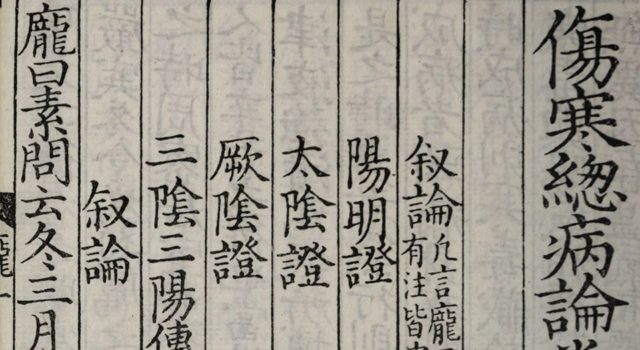 傷寒總病論
叙論凡言龐
有注皆
陽明證
太陰證
厥陰證
三陰三陽傳
叙論
龐曰素問云冬三月